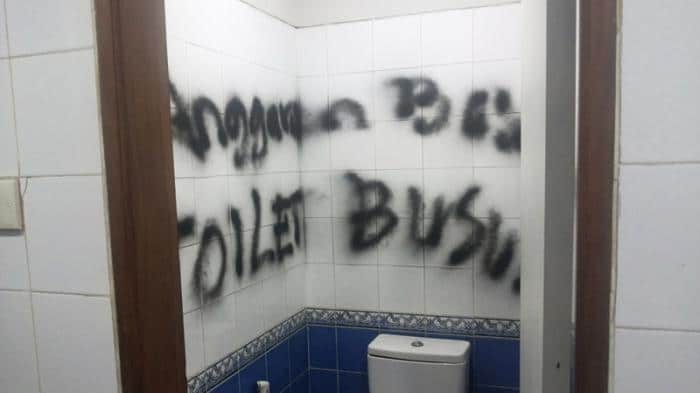 Anggaran Bes
TOILET BUSU